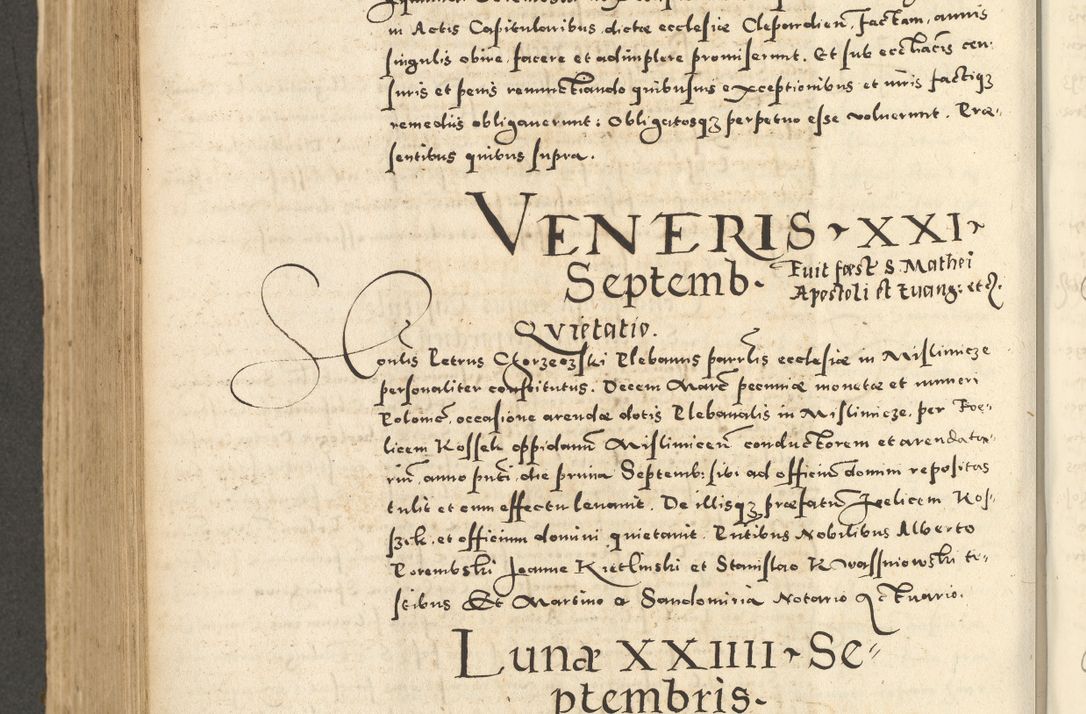 in Actis Capitularibus dictæ ecclesiæ Clepardien. factam, annis
singulis obire, facere et adimplere promiserunt. Et sub eccliacis cen-
suris et penis renunctiando quibusuis exceptionibus et iuris factiqz
remediis obligauerunt: Obligatosqz perpetuo esse voluerunt. Præ-
sentibus quibus supra.
VENERIS XXI
Septemb.
Fuit fæst S. Mathei
Apostoli et Euang: etc.
Quietatio.
Honlis Petrus Chorzeozski Plebanus parrlis ecclesiæ in Mislimicze
personaliter constitutus. Decem Marc pecuniæ monetæ et numeri
Polonic, occasione arendæ dotis Plebanalis in Mislimicze, per Foe-
licem Kossek oppidanum Mislimicen conductorem et arendata-
rium, anno pnti, die prima Septemb: sibi ad officium domini repositas
tulit et cum effectu leuauit. De illisqz præfatum Foelicem Kos-
szek et officium domini quietauit. Pntibus Nobilibus Alberto
Porembski Joanne Kietlinski et Stanislao K Wassniowski te-
stibus Et Martino a Sandomiria Notario Actuario.
Lunæ XXIIII Se-
ptembris.